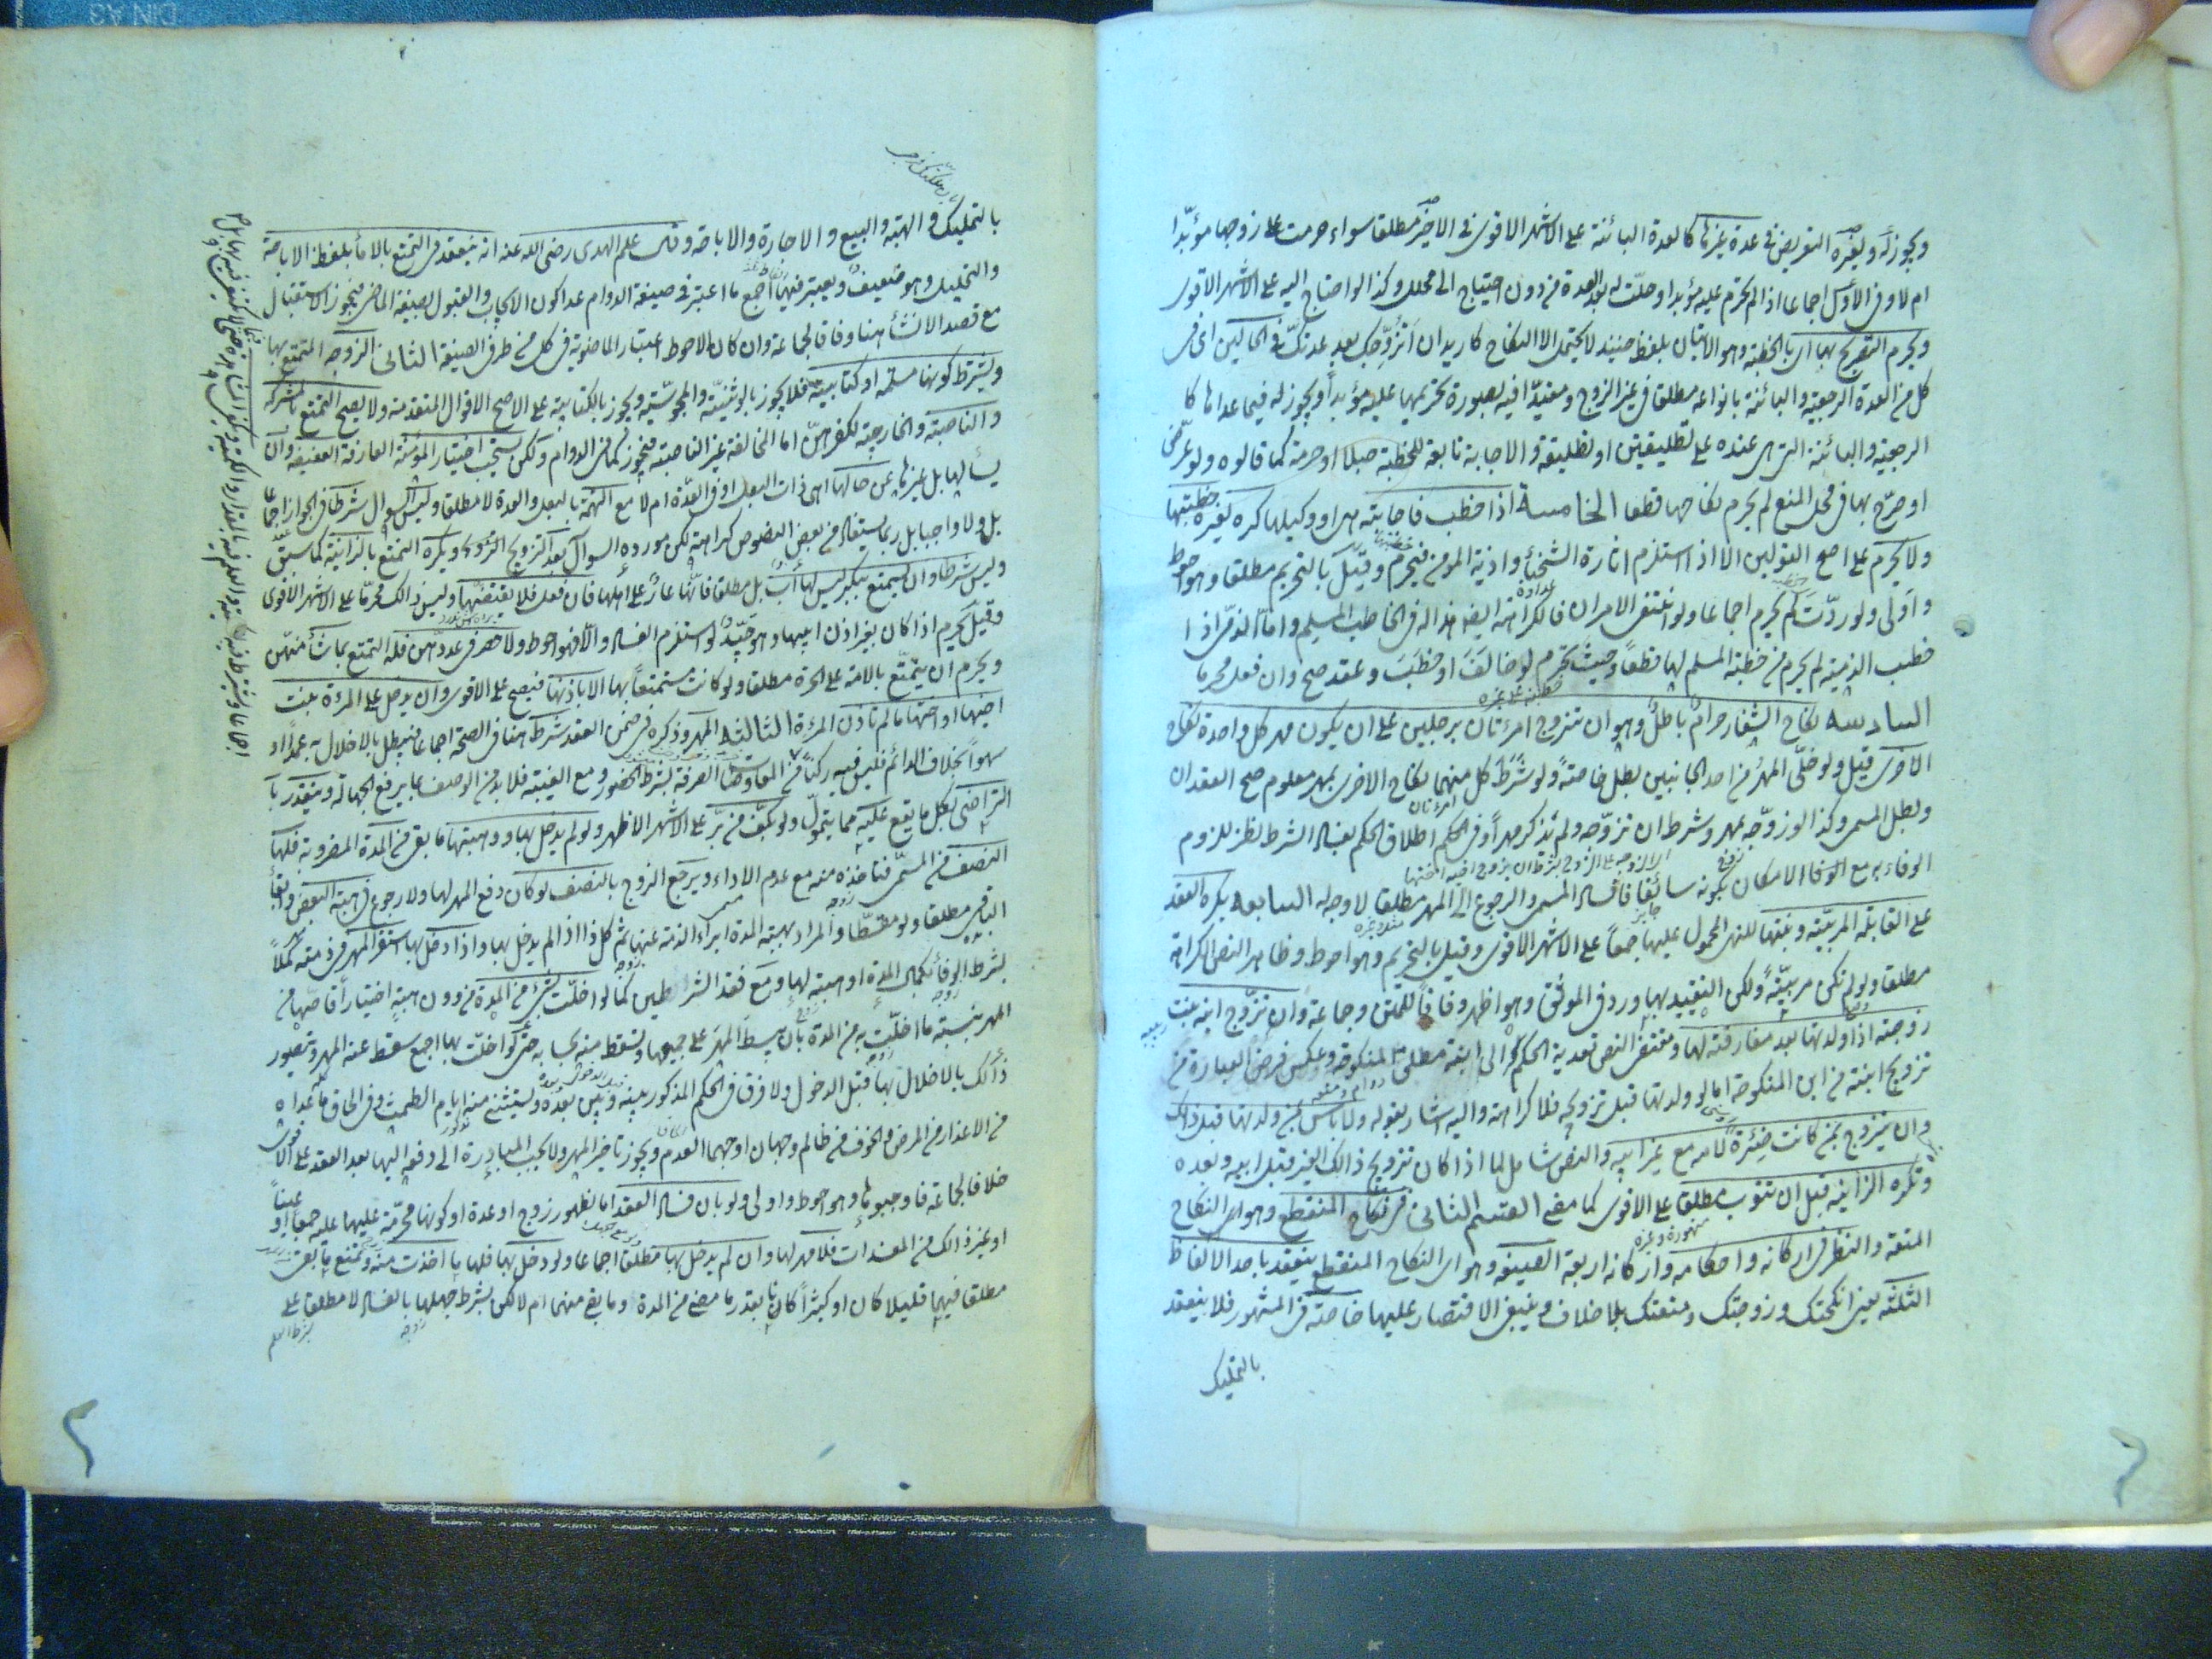 ويجوز له ولغيره التعريض في عدة غيرها كالعدة البائنة على الاشهر الاقوى في الاخير مطلقا سواء حرمت على زوجها مؤبدا
ام لا وفي الاول اجماعا اذا لم تحرم عليه مؤبدا وحلت له بعد العدة من دون احتياج الى محلل وكذا لو احتاج اليه على الاشهر الاقوى
ويحرم التصريح بها اي بالخطبة وهو الاتيان بلفظ لا يحتمل الا النكاح كاريد ان اتزوجك بعد عدتك في الحالين اي في
كل من العدة الرجعية والبائنة بانواعه مطلقا في غير الزوج ومقيدا فيه بصورة تحريمها عليه مؤبدا ويجوز له فيما عداها كا
الرجعية والبائنة التي عنده على تطليقتين او تطليقة والاجابة تابعة للخطبة حلا او حرمة كما قالوه ولو عرض
او صرح بها في محل المنع لم يحرم نكاحها قطعا الخامسة اذا خطب فاجابته هي او وكيلها كره لغيره خطبتها
ولا يحرم على اصح القولين الا اذا استلزم اثارة الشحناء واذية المؤمن فيحرم وقيل بالتحريم مطلقا وهو احوط
واولى ولو ردت لم يحرم اجماعا ولو انتفى الامران فالكراهة ايضا هذا له في الخاطب المسلم واما الذمي اذا
خطب الذمية لم يحرم من خطبة المسلم لها قطعا وحيث تحرم لو خالف او خطب وعقد صح وان فعل محرما
السادسة نكاح الشغار حرام باطل وهو ان تتزوج امرئتان برجلين على ان يكون مهر كل واحدة نكاح
الاخرى قيل ولو خلى المهر من احد الجانبين بطل خاصة ولو شرط كل منهما نكاح الاخرى بمهر معلوم صح العقدان
وبطل المسمى وكذا لو زوجه بمهر وشرط ان تزوجه ولم تذكر مهرا وفي الحكم اطلاق الحكم بفساد الشرط نظر للزوم
الوفاء به مع الامكان بكونه سائغا ففساد المسمى والرجوع الى المهر مطلقا لا وجه له السابعة يكره العقد
على القابلة المربية وبنتها للنهي المحمول عليها جمعا على الاشهر الاقوى وقيل بالتحريم وهو احوط وظاهر النص الكراهة
مطلقا ولو لم تكن مربية ولكن التقييد بها ورد في الموثق وهو اظهر وفاقا للمتن وجماعة وان تزوج ابنه بنت
زوجته اذا ولدتها بعد مفارقته لها ومقتضى النص تعدية الحكم الى ابنة مطلق المنكوحة وعكس فرض العبارة من
تزويج ابنته من ابن المنكوحة اما لو ولدتها قبل تزويجه فلا كراهة واليه اشار بقوله ولا باس بمن ولدتها قبل ذالك
وان يتزوج بمن كانت ضرة لامه مع غير ابيه والنص شامل لما اذا كان تزويج ذالك الغير قبل ابيه وبعده
وتكره الزانية قبل ان تتوب مطلقا على الاقوى كما مضى القسم الثاني في نكاح المنقطع وهو اي النكاح
المتعة والنظر في اركانه واحكامه واركانه اربعة الصيغة وهو اي النكاح المنقطع ينعقد باحد الالفاظ
الثلثة يعني انكحتك وزوجتك ومتعتك بلا خلاف وينبغي الاقتصار عليها خاصة في المشهور فلا ينعقد
بالتمليك
بالتمليك والهبة والبيع والاجارة والاباحة وعن علم الهدى رضى الله عنه انه ينعقد في التمتع بالاماء بلفظ الاباحة
والتحليل وهو ضعيف ويعتبر فيها جميع ما اعتبر في صيغة الدوام عدا كون الايجاب والقبول بصيغة الماضي فيجوز الاستقبال
مع قصد الانشاء هنا وفاقا لجماعة وان كان الاحوط اعتبار الماضوية في كل من طرفي الصيغة الثاني الزوجة المتمتع بها
ويشترط كونها مسلمة او كتابية فلا يجوز بالوثنية والمجوسية ويجوز بالكتابية على الاصح الاقوال المتقدمة ولا يصح التمتع بالمشركة
والناصبة والخارجية لكفرهن اما المخالفة غير الناصبة فيجوز كما في الدوام ولكن يستحب اختيار المؤمنة العارفة العفيفة وان
يسألها بل غيرها عن حالها اهي ذات البعل او في العدة ام لا مع التهمة بالبعل والعدة لا مطلقا وليس السؤال شرطا في الجواز اجماعا
بل ولا واجبا بل ربما يستفاد من بعض النصوص كراهته لكن مورده السؤال بعد التزويج ويكره التمتع بالزانية كما سبق
وليس شرطا وان يتمتع ببكر ليس لها اب بل مطلقا فانها عار على اهلها فان فعل فلا يفتضها وليس ذالك محرما على الاشهر الاقوى
وقيل يحرم اذا كان بغير اذن ابيها وهو جيد لو استلزم الفساد والا فهو احوط ولا حصر في عددهن فله التمتع بما شاء منهن
ويحرم ان يتمتع بالامة على الحرة مطلقا ولو كانت متمتعا بها الا باذنها فيصح على الاقوى وان يدخل على المرئة بنت
اخيها او اختها ما لم تاذن المرئة الثالثة المهر وذكره في ضمن العقد شرط هنا في الصحة اجماعا فيبطل بالاخلال به عمدا او
سهوا بخلاف الدائم فليس فيه ركنا المعاوضة بشرط الحضور ومع الغيبة فلا بد من الوصف بما يرفع الجهالة ويتقدر با
التراضي بكل ما يقع عليه مما يتمول ولو بكف من بر على الاشهر الاظهر ولو لم يدخل بها ووهبتها ما بقي من المدة المضروبة فلها
النصف من المسمى فتاخذه منه مع عدم الاداء ويرجع الزوج بالنصف لو كان دفع المهر لها ولا رجوع في هبة البعض
الباقي مطلقا ولو مقسطا والمراد بهبته المدة ابراء الذمة عنها ثم كل ذا اذا لم يدخل بها واذا دخل بها استقر المهر في ذمته كملا
بشرط الوفاء بكمال المدة او هبته لها ومع فقد الشرطين كما لو اخلت بشئ من المدة من دون هبة اختيارا قاصها من
المهر بنسبة ما اخلت به من المدة بان يبسط المهر على جميعها ويسقط منه بحسابه حتى لو اخلت بها اجمع سقط عنه المهر ويتصور
ذالك بالاخلال بها قبل الدخول ولا فرق في الحكم المذكور بينه وبين بعده ويستثنى منه ايام الطمث وفي الحاق ما عداه
من الاعذار من المرض والخوف من ظالم وجهان اوجههما العدم ويجوز تاخير المهر ولا يجب المبادرة الى دفعه اليها بعد العقد على الاقوى
خلافا لجماعة فاوجبوها وهو احوط واولى ولو بان فساد العقد اما بظهور زوج او عدة او كونها محرمة عليهما عليه جمعا او عينا
او غير ذالك من المفسدات فلا مهر لها وان لم يدخل بها مطلقا اجماعا ولو دخل بها فلها ما اخذت منه وتمنع ما بقي
مطلقا فيهما قليلا كان او كثيرا كان بقدر ما مضى من المدة وما بقي منهما ام لا لكن بشرط جهلها بالفساد لا مطلقا على